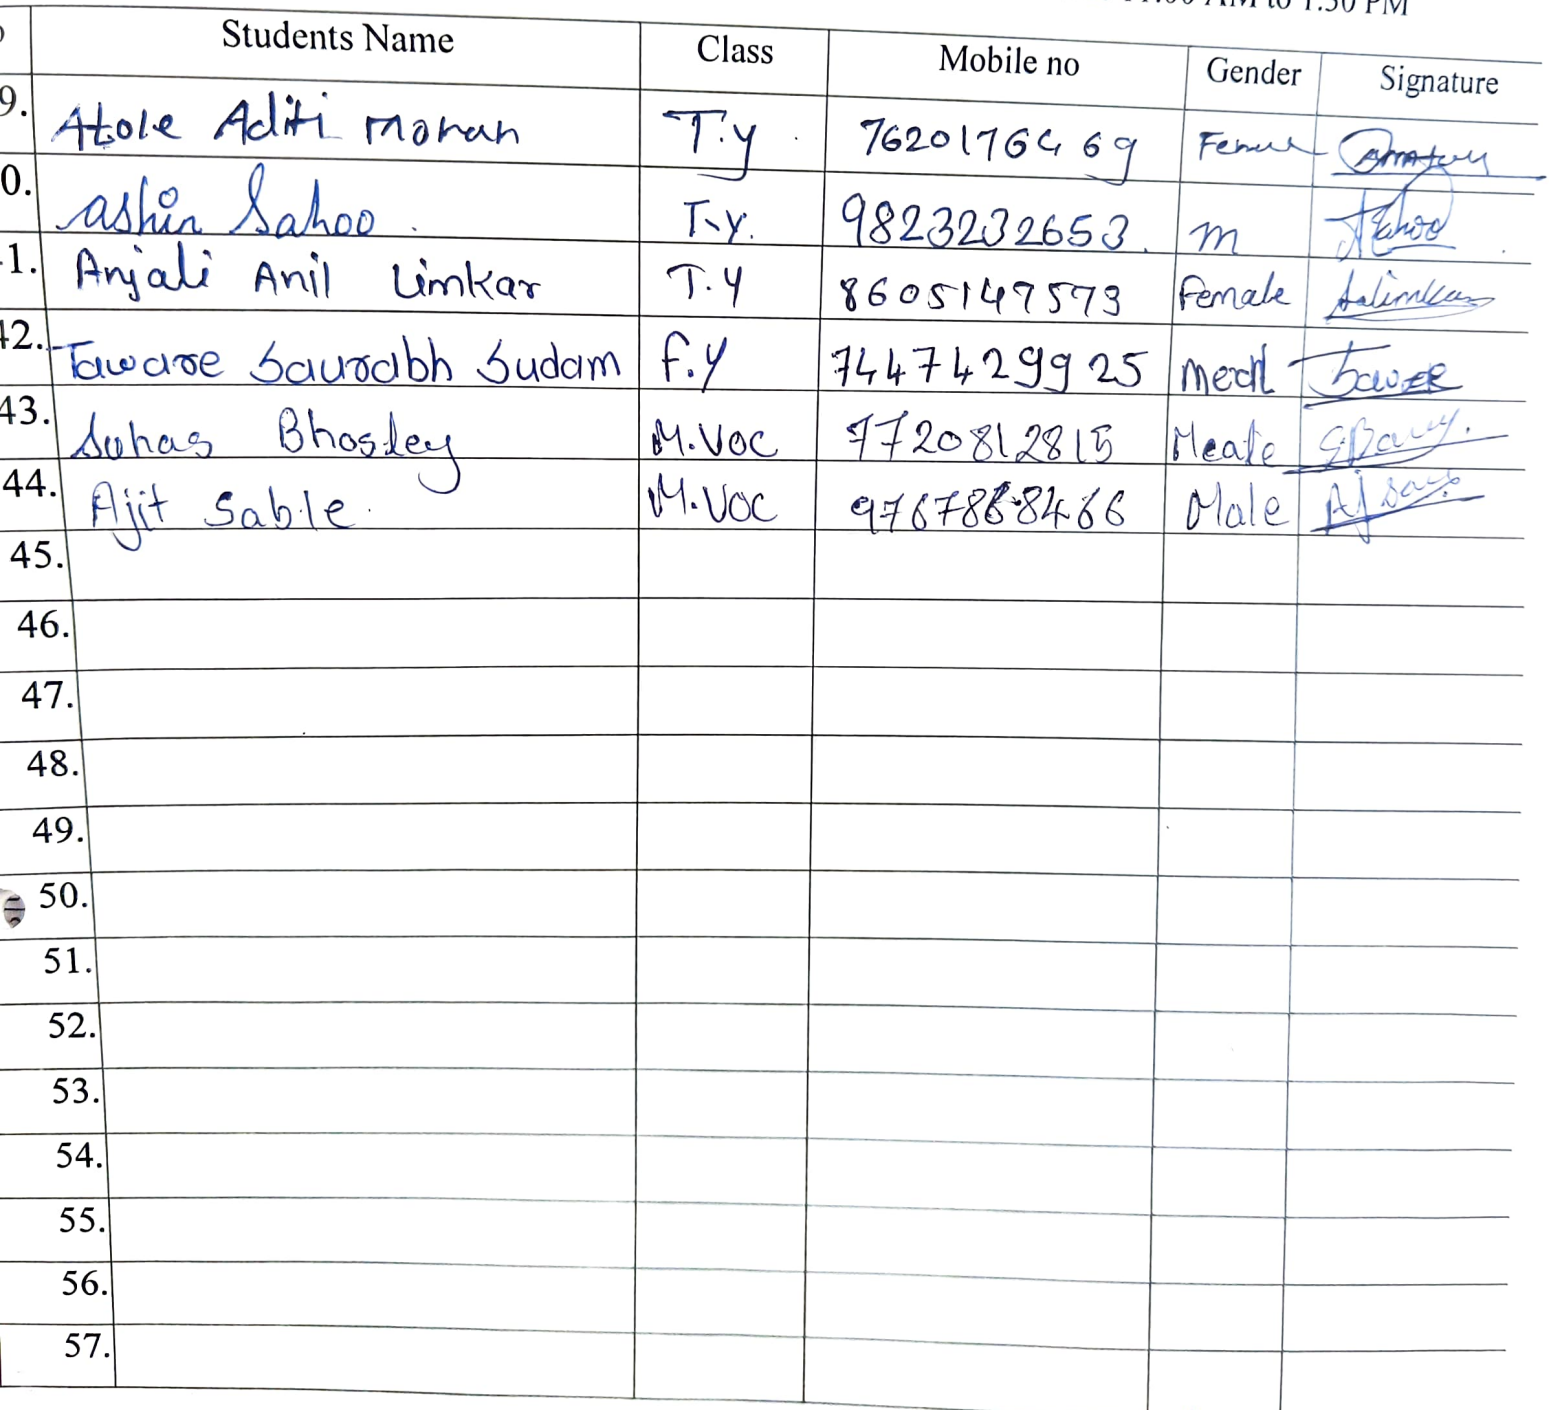 to 1:30 PM
Students Name Class Mobile no Gender Signature
9. Atole Aditi Mohan T.y 7620176469
0. ashin Sahoo. T.Y. 9823232653. m
1. Anjali Anil Limkar T.Y 8605147573 Female
42. Taware Saurabh Sudam F.Y 7447429925
43. Suhas Bhosley M.VOC 7720812815 Meale
44. Ajit Sable. M.VOC 9767868466 Male
45.
46.
47.
48.
49.
50.
51.
52.
53.
54.
55.
56.
57.